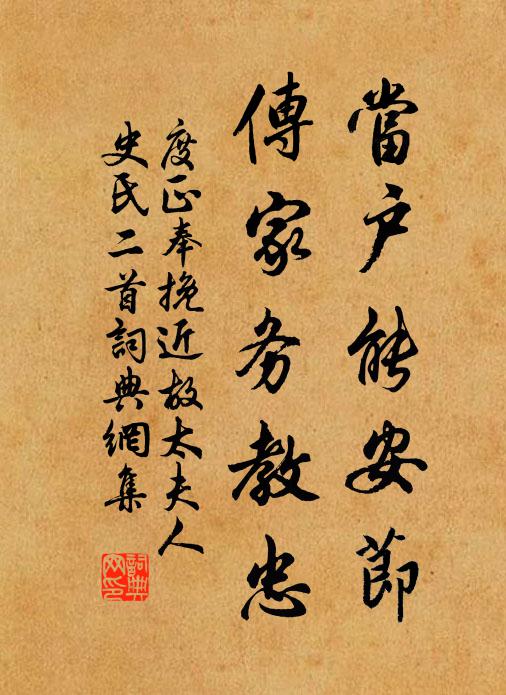 當户能安節
傳家务教忠
度正奉挽近故太夫人
史氏二首詞典網集
詞典
网印